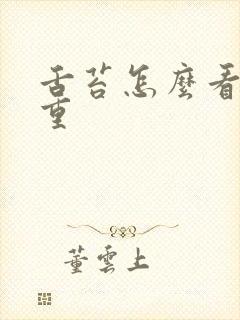 舌苔怎麼看
重
董雲上